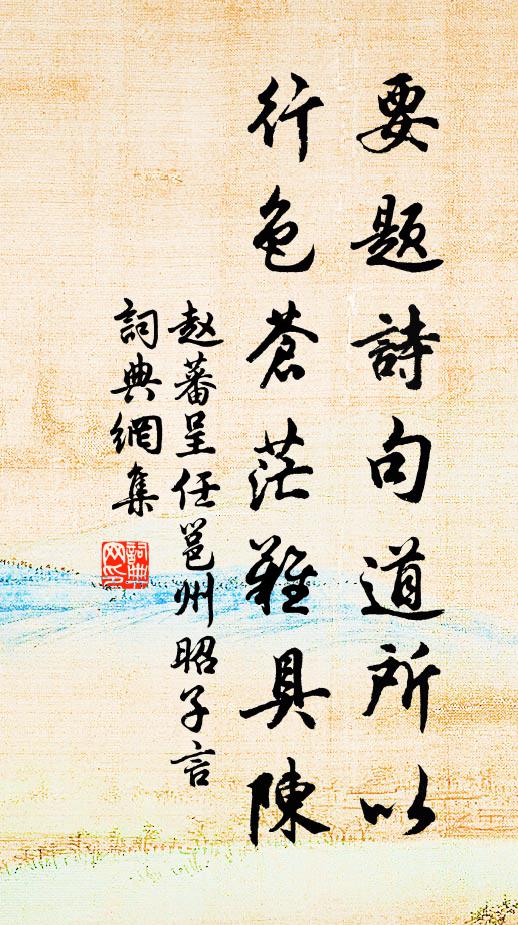 要题詩句道所以
行色蒼茫難具陳
赵蕃呈任邕州昭子言
詞典網集
詞典网印